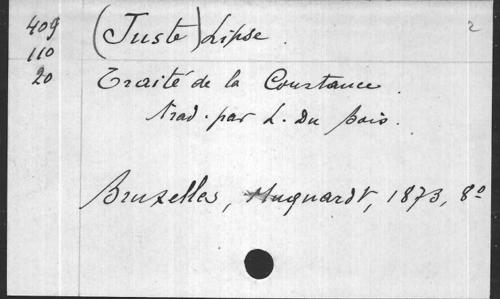 409 (Juste) Lipse. 2
110
20 Traité de la Constance.
trad. par L. Du bois.
Bruxelles, Muquardt, 1873, 8º